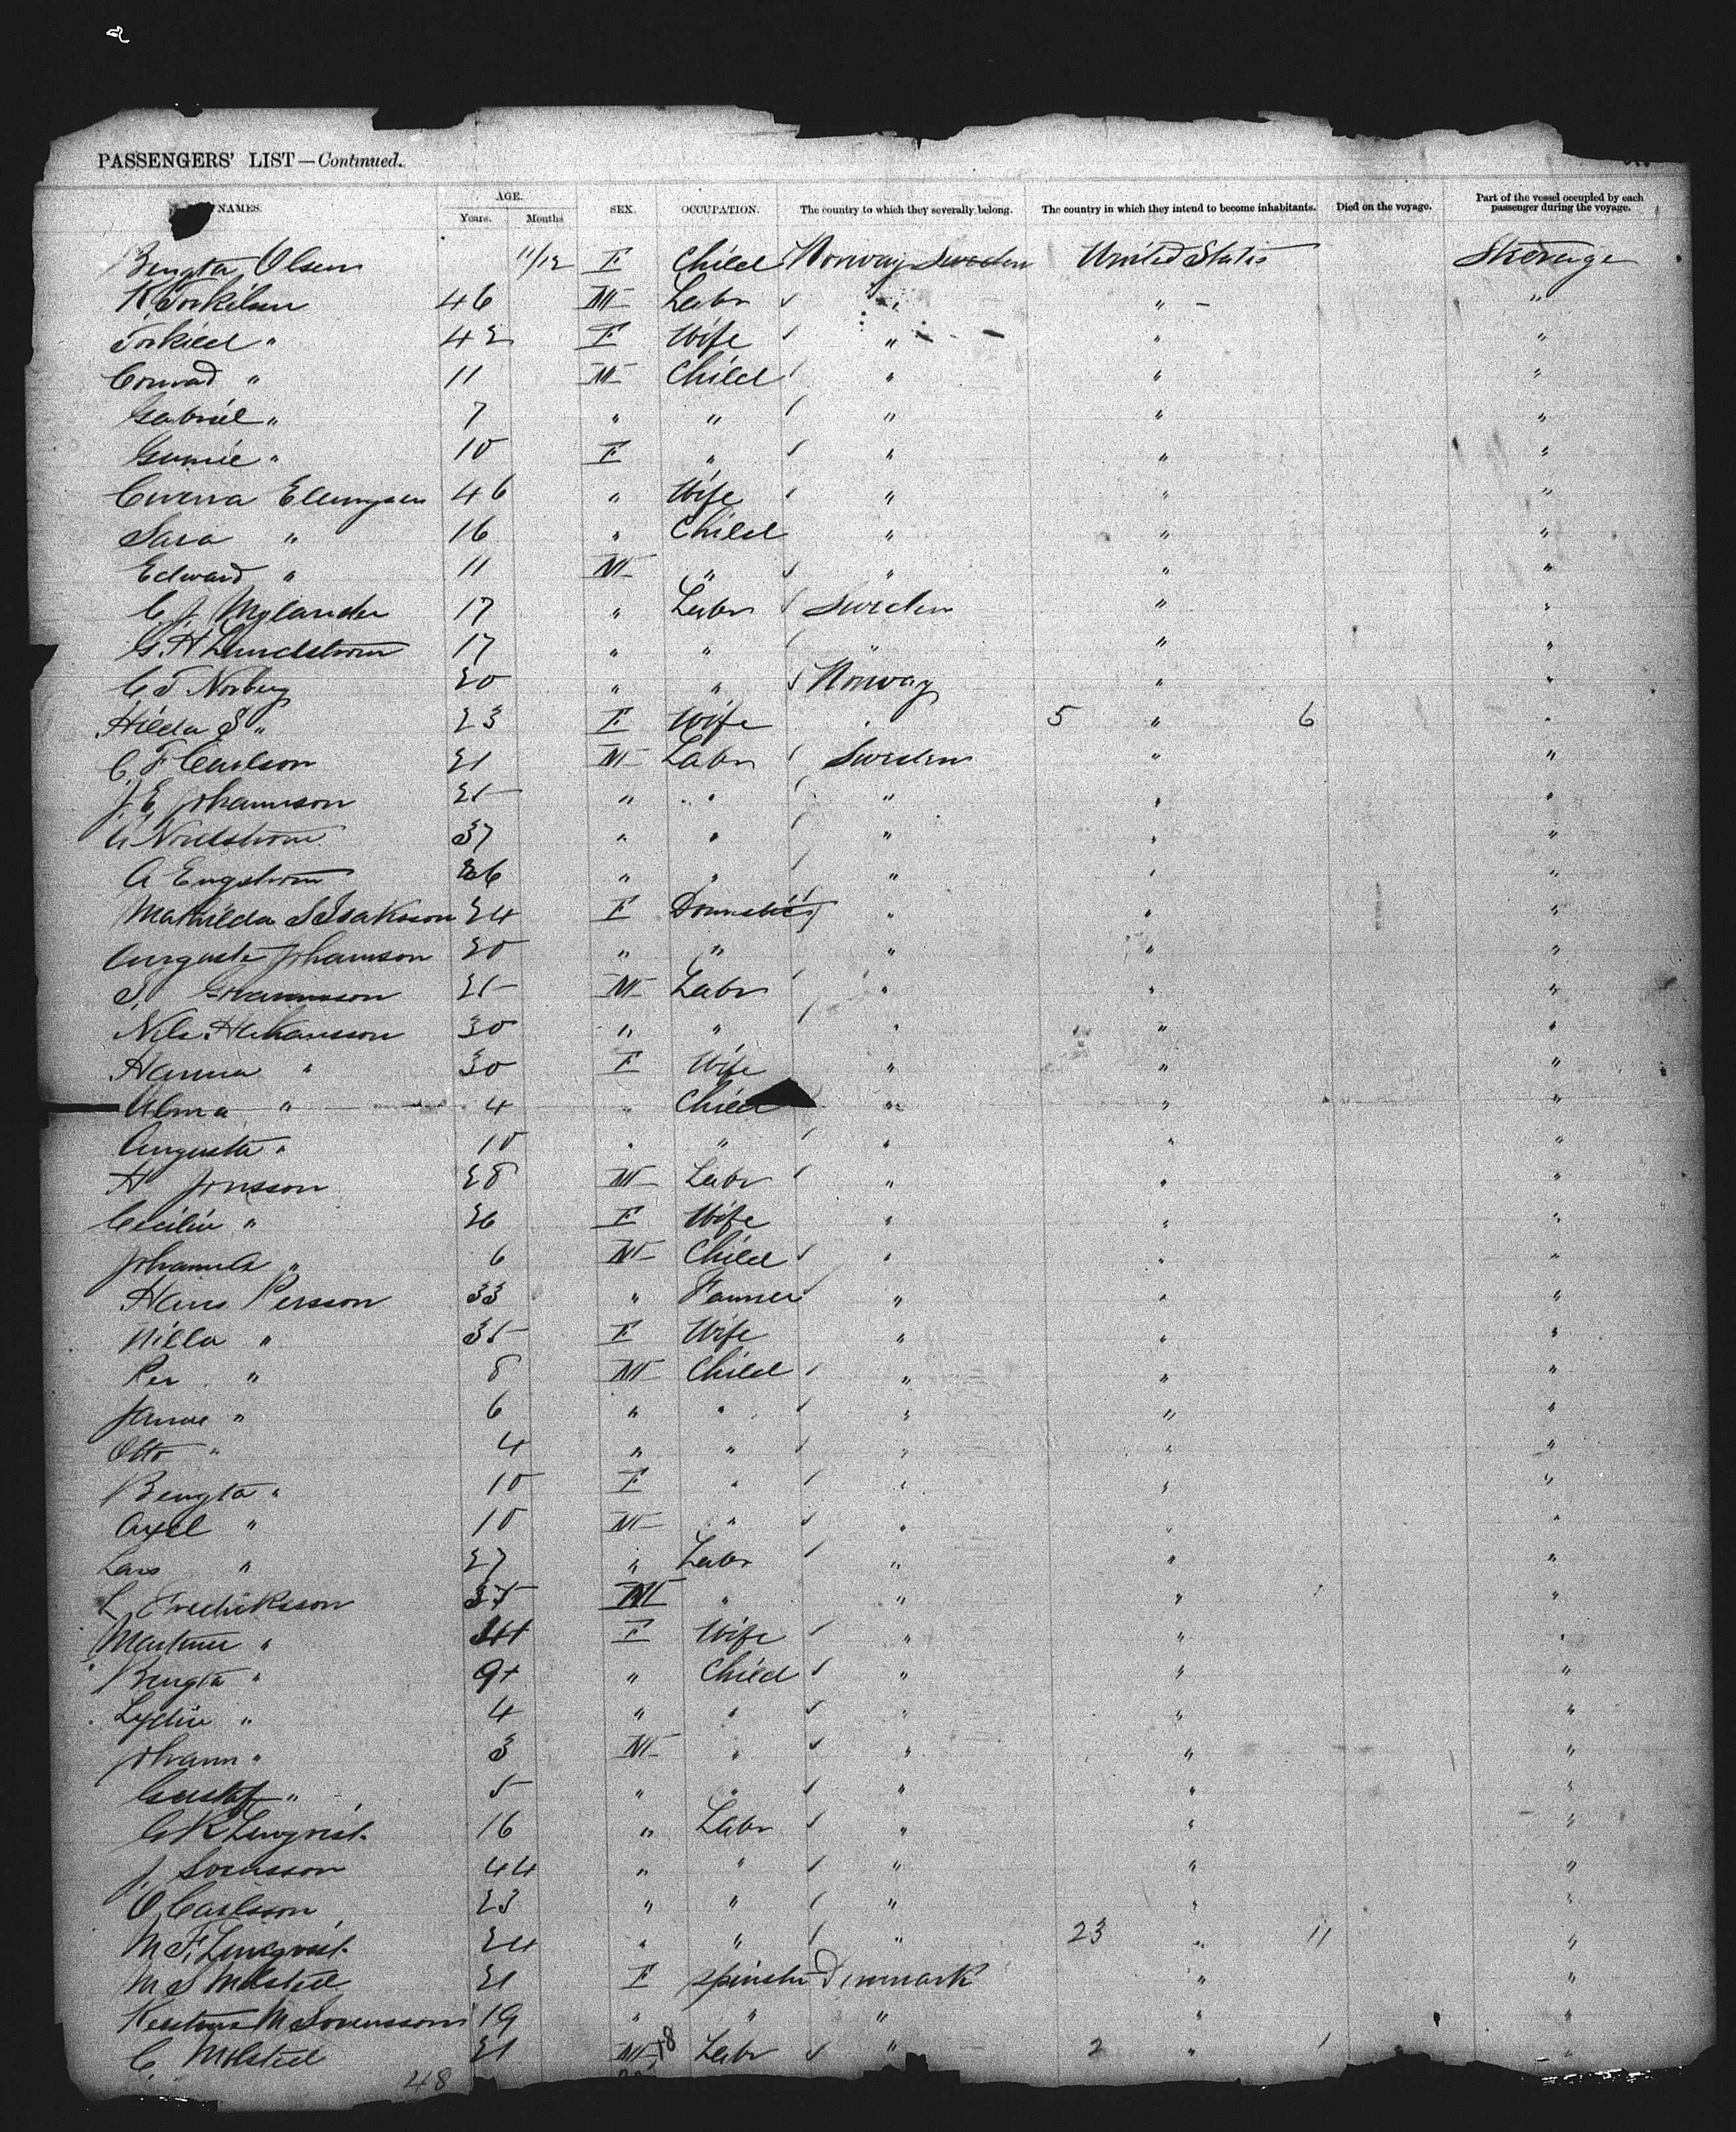 PASSENGERS' LIST—Continued.
NAMES. AGE. Years. Months SEX. OCCUPATION. The country to which they severally belong. The country in which they intend to become inhabitants. Died on the voyage. Part of the vessel occupied by each passenger during the voyage.
Bengta Olsen 11/12 F Child Norway Sweden United States Steerage
K. Torkilsen 46 M Labr " " "
Torkild " 42 F Wife " " "
Conrad " 11 M Child " " "
Gabriel " 7 " " " " "
10 F " " " "
46 " Wife " " "
Sara " 16 " Child " " "
Edward " 11 M " " " "
C. J. Mylander 17 " Labr Sweden " "
G. H Lundstrom 17 " " " " "
C T Norberg 20 " " Norway " "
Hilda S " 23 F Wife " 5 " 6 "
C. F Carlson 21 M Labr Sweden " "
J. E. Johannson 25 " " " " "
Nordstrom 37 " " " " "
A Engstrom 26 " " " " "
Mathilda S Isaksson 24 F Domestics " " "
Auguste Johannson 20 " " " " "
S. 25 M Labr " " "
Nils Hakansson 30 " " " " "
Hanna " 30 F Wife " " "
Alma " 4 " Child " " "
Augusta " 10 " " " " "
H Jonsson 28 M Labr " " "
Cecilie " 26 F Wife " " "
6 M Child " " "
Hans Persson 33 " Farmer " " "
Nilla " 35 F Wife " " "
Per " 8 M Child " " "
Janne " 6 " " " " "
Otto " 4 " " " " "
Bengta " 10 F " " " "
Axel " 10 M " " " "
Lars " 27 " Labr " " "
L Fredriksson M " " " "
F Wife " " "
Bengta " 9 " Child " " "
Lydia " 4 " " " " "
Johann " 3 M " " " "
Gustaf " 5 " " " " "
16 " Labr " " "
J. Sorensson 44 " " " " "
O Carlsson 23 " " " " "
M F. Linqvist 24 " " " 23 " 11 "
M S Molsted 21 F spinster Denmark " "
Kerstine M Sorensson 19 " " " " "
C. Molsted 21 M 18 Labr " 2 " 1 "
48